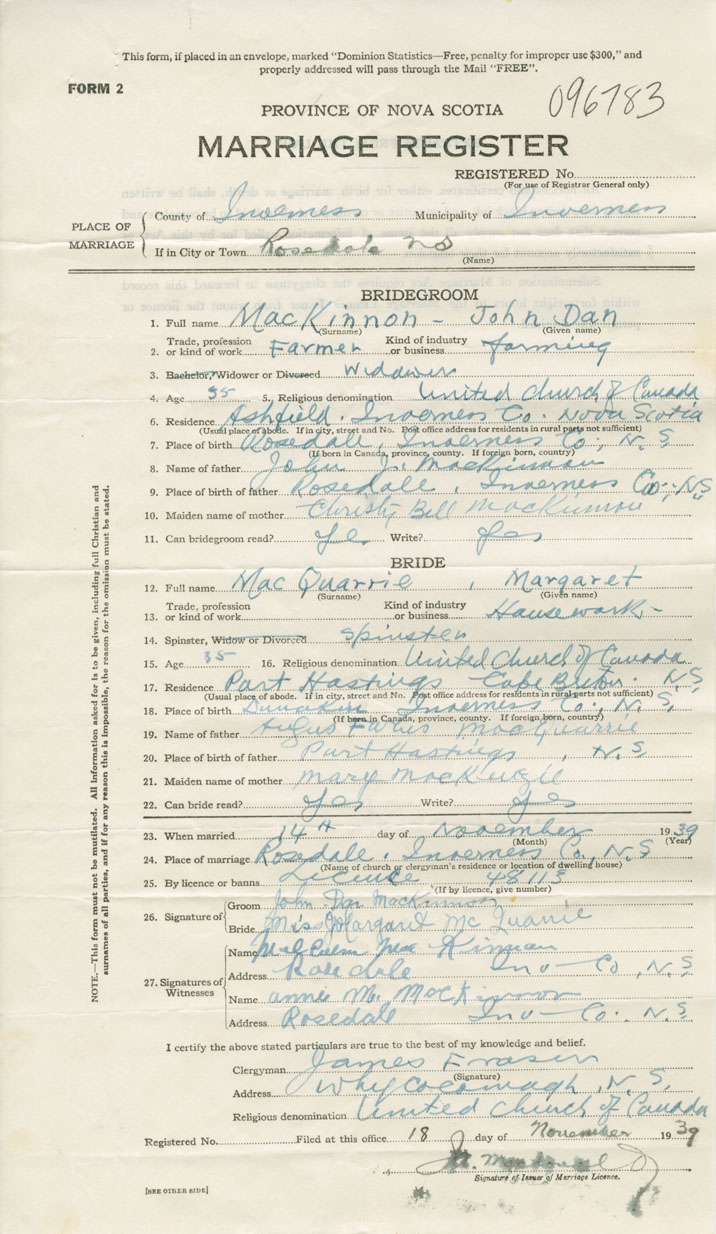 This form, if placed in an envelope, marked "Dominion Statistics—Free, penalty for improper use $300," and
properly addressed will pass through the Mail "FREE".
FORM 2
096783
PROVINCE OF NOVA SCOTIA
MARRIAGE REGISTER
REGISTERED No.
(For use of Registrar General only)
PLACE OF MARRIAGE
County of Inverness Municipality of Inverness
If in City or Town Rosedale NS
(Name)
BRIDEGROOM
1. Full name MacKinnon - John Dan
(Surname) (Given name)
2. Trade, profession or kind of work Farmer Kind of industry or business farming
3. Bachelor, Widower or Divorced Widower
4. Age 35 5. Religious denomination United Church of Canada
6. Residence Ashfield. Inverness Co. Nova Scotia
(Usual place of abode. If in city, street and No. Post office address for residents in rural parts not sufficient)
7. Place of birth Rosedale, Inverness Co., N.S.
(If born in Canada, province, county. If foreign born, country)
8. Name of father John J. MacKinnon
9. Place of birth of father Rosedale, Inverness Co., N.S
10. Maiden name of mother Christy Bell MacKinnon
11. Can bridegroom read? Yes Write? Yes
BRIDE
12. Full name MacQuarrie, Margaret
(Surname) (Given name)
13. Trade, profession or kind of work Kind of industry or business Housework-
14. Spinster, Widow or Divorced Spinster
15. Age 35 16. Religious denomination United Church of Canada
17. Residence Port Hastings Cape Breton. N.S
(Usual place of abode. If in city, street and No. Post office address for residents in rural parts not sufficient)
18. Place of birth Inverness Co., N.S,
(If born in Canada, province, county. If foreign born, country)
19. Name of father Angus MacQuarrie
20. Place of birth of father Port Hastings, N.S.
21. Maiden name of mother Mary MacKenzie
22. Can bride read? Yes Write? Yes
23. When married 14th day of November 1939
(Month) (Year)
24. Place of marriage Rosedale, Inverness Co., N.S
(Name of church or clergyman's residence or location of dwelling house)
25. By licence or banns License 48113
(If by licence, give number)
26. Signature of
Groom John Dan MacKinnon
Bride Miss Margaret McQuarrie
27. Signatures of Witnesses
Name Malcolm MacKinnon
Address Rosedale Inv- Co, N.S
Name Annie M. MacKinnon
Address Rosedale Inv- Co. N.S
I certify the above stated particulars are true to the best of my knowledge and belief.
Clergyman James Fraser
(Signature)
Address Whycocomagh, N.S.
Religious denomination United Church of Canada
Registered No. Filed at this office 18 day of November 1939
Signature of Issuer of Marriage Licence.
[SEE OTHER SIDE]
NOTE.—This form must not be mutilated. All Information asked for is to be given, including full Christian and
surnames of all parties, and if for any reason this is impossible, the reason for the omission must be stated.